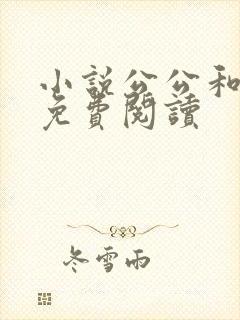 小說公公和
免費閱讀
冬雪雨